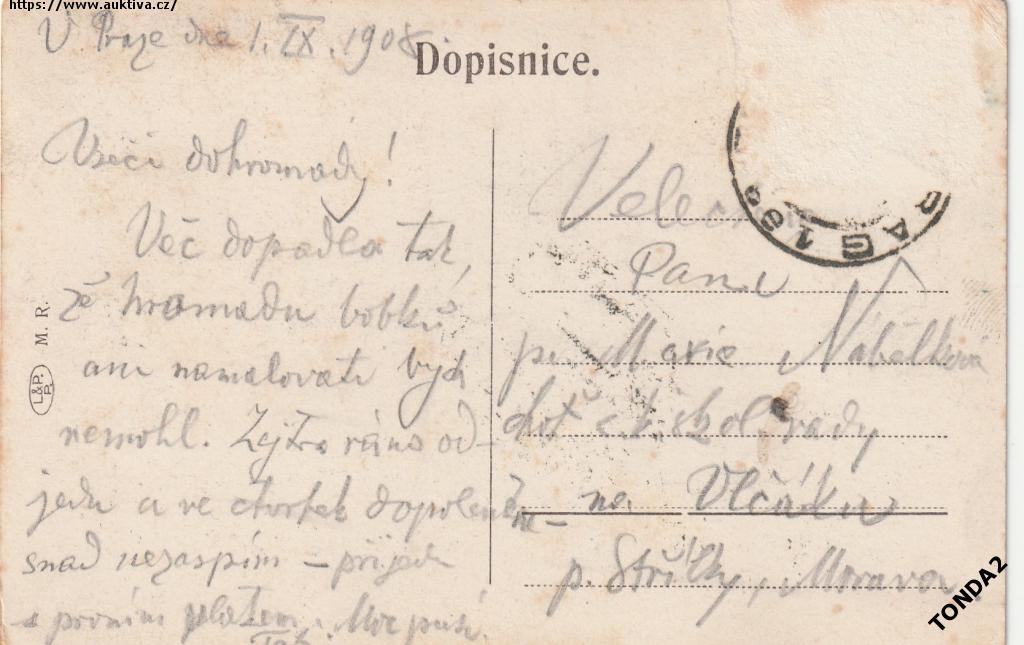 https://www.auktiva.cz/
V Praze dne 1. IX. 1908.
Dopisnice.
Všeci dohromady!
Věc dopadla tak,
že hromadu bobků
ani namalovati bych
nemohl. Zejtra ráno od-
jedu a ve čtvrtek dopoledne
snad nezaspím – přijedu
s prvním
Moc pusí.
Táta
Velectěná
Paní
pí. Marie Nábělková
choť c. k. škol. rady
na Vlčáku
p. Střílky, Morava
PRAG
L&P.
P.
M. R.
TONDA2